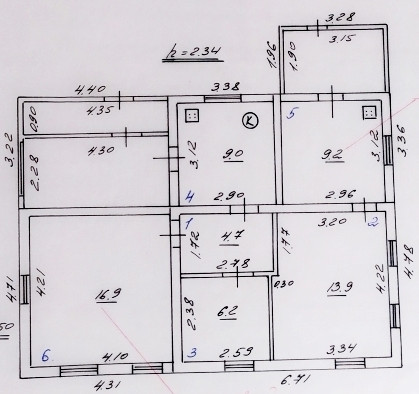 3.28
3.15
1.96
1.90
h=2.34
4.40
4.35
0.90
3.38
5
K
3.22
2.28
4.30
3.12
9.0
9.2
3.12
3.36
4
2.90
2.96
1
4.7
1.72
2.78
1.77
3.20
2
4.71
4.21
16.9
6.2
2.38
0.30
13.9
4.22
4.78
50
6
4.10
3
2.59
3.34
4.31
6.71